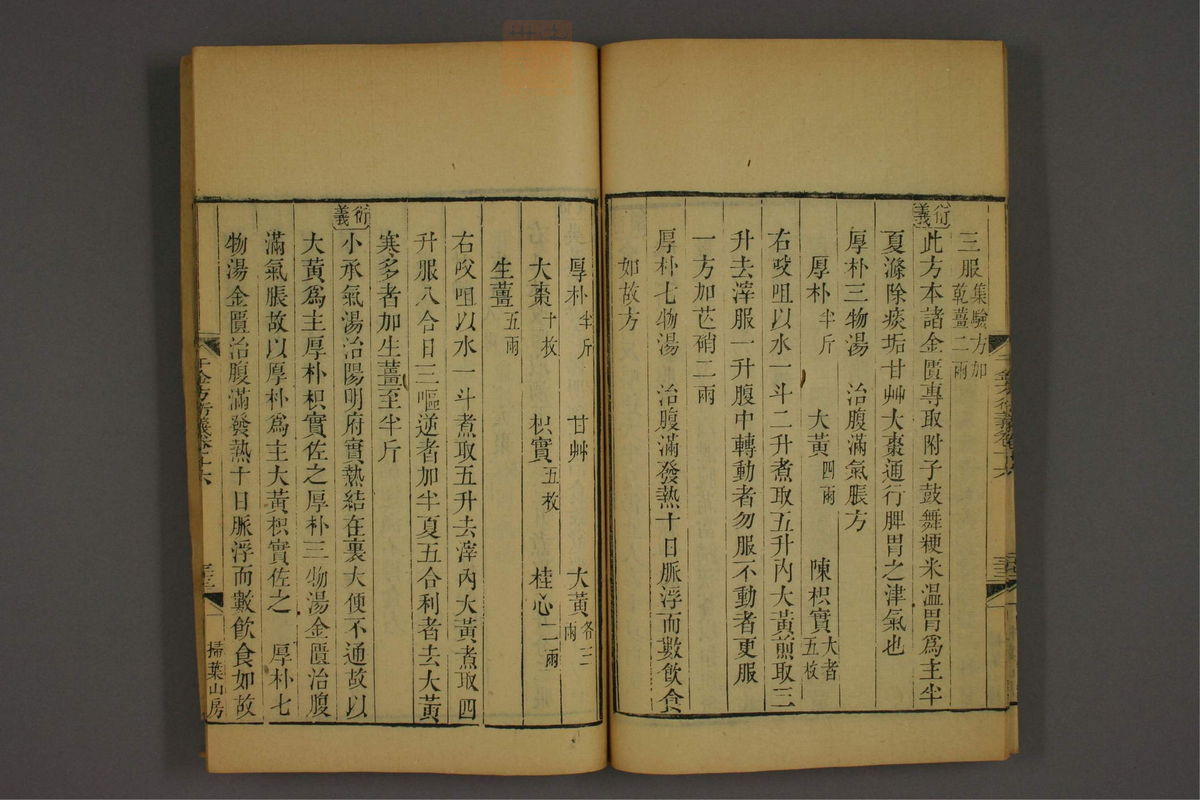 三服集驗方加乾薑二兩
衍義此方本諸金匱專取附子鼓舞粳米溫胃爲主半
夏滌除痰垢甘艸大棗通行脾胃之津氣也
厚朴三物湯 治腹滿氣脹方
厚朴半斤 大黃四兩 陳枳實大者五枚
右㕮咀以水一斗二升煮取五升內大黃煎取三
升去滓服一升腹中轉動者勿服不動者更服
一方加芒硝二兩
厚朴七物湯 治腹滿發熱十日脈浮而數飲食
如故方
厚朴半斤 甘艸 大黃各三兩
大棗十枚 枳實五枚 桂心二兩
生薑五兩
右㕮咀以水一斗煮取五升去滓內大黃煮取四
升服八合日三嘔逆者加半夏五合利者去大黃
寒多者加生薑至半斤
衍義小承氣湯治陽明府實熱結在裏大便不通故以
大黃爲主厚朴枳實佐之厚朴三物湯金匱治腹
滿氣脹故以厚朴爲主大黃枳實佐之 厚朴七
物湯金匱治腹滿發熱十日脈浮而數飲食如故
千金方衍義卷十六
掃葉山房